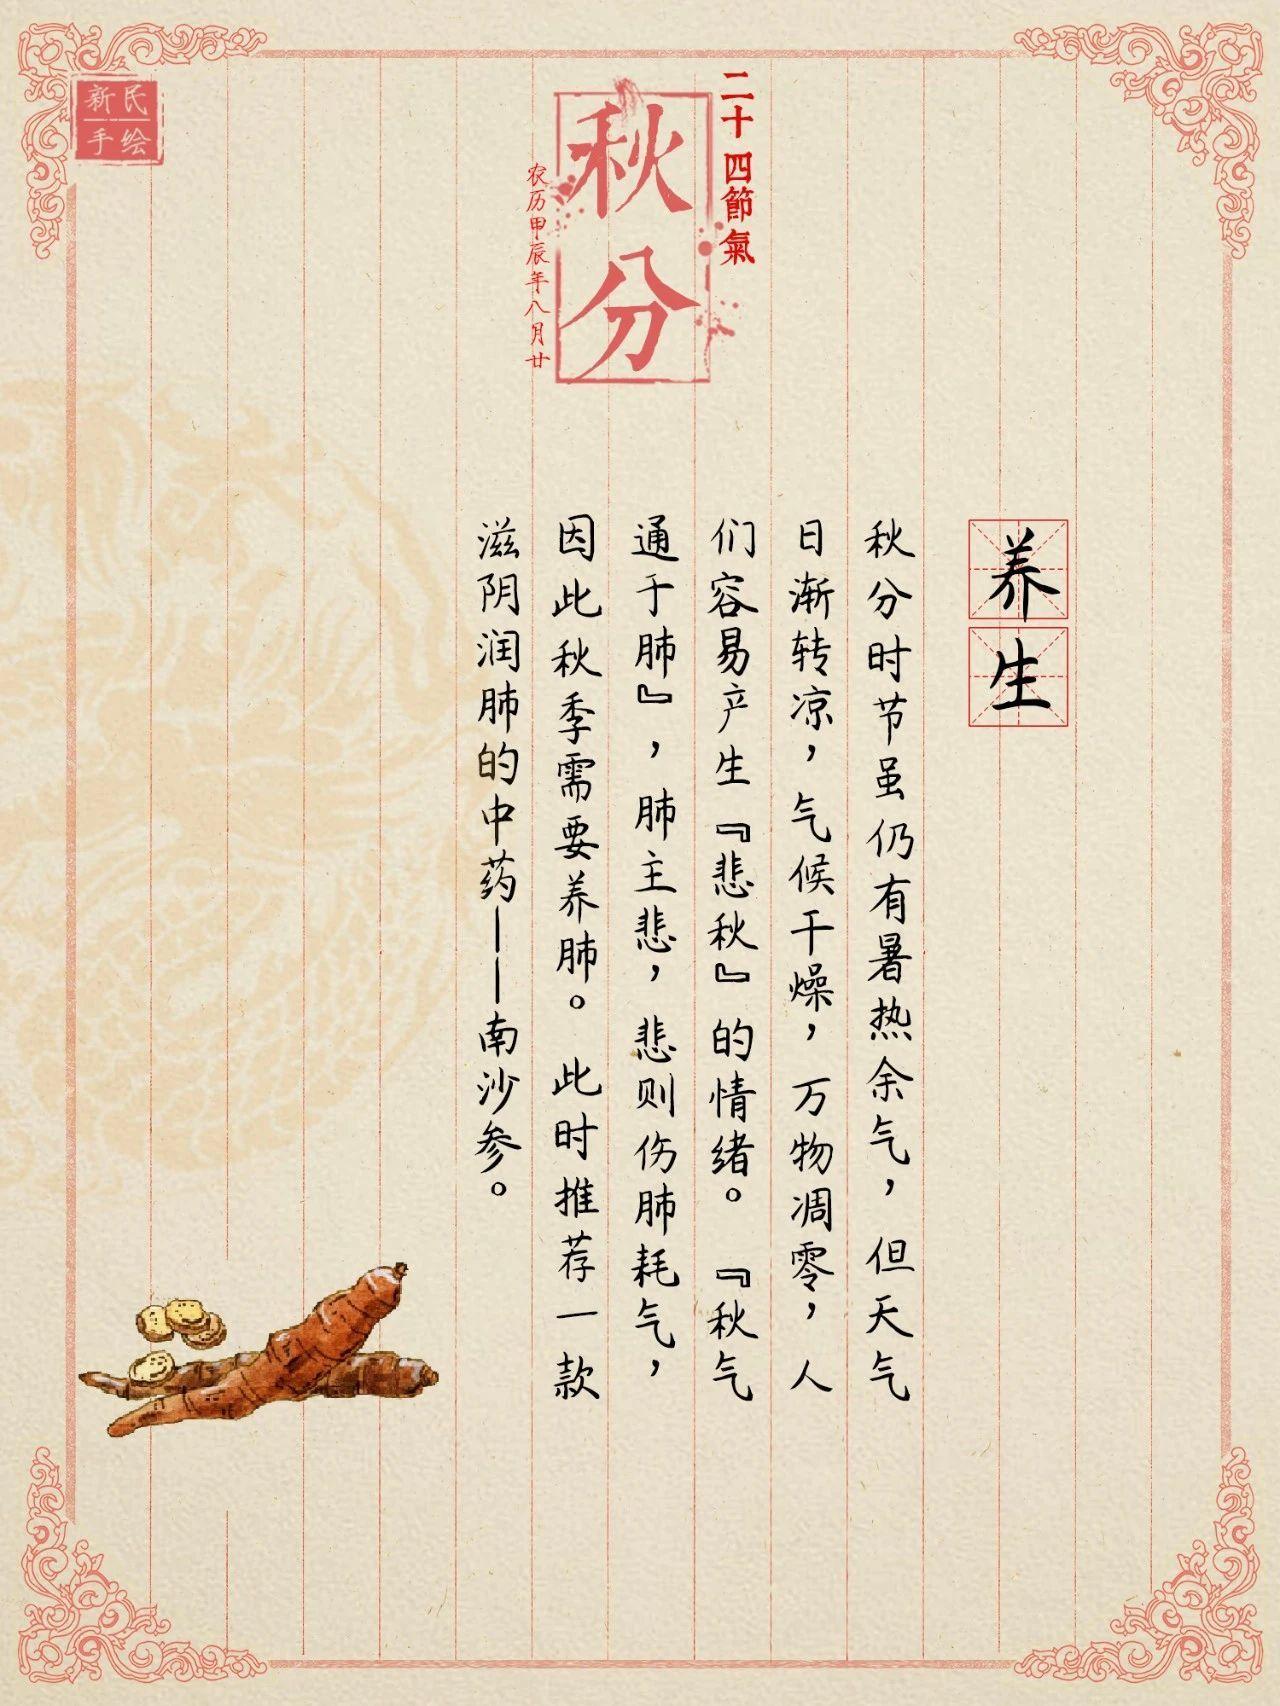 新民
手绘
二十四節氣
秋分
农历甲辰年八月廿
养生
秋分时节虽仍有暑热余气，但天气
日渐转凉，气候干燥，万物凋零，人
们容易产生『悲秋』的情绪。『秋气
通于肺』，肺主悲，悲则伤肺耗气，
因此秋季需要养肺。此时推荐一款
滋阴润肺的中药——南沙参。